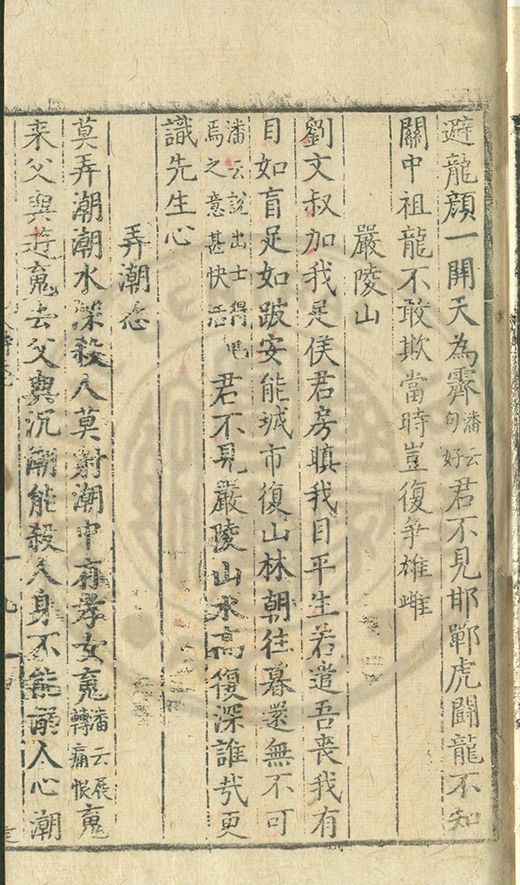 避龍顏一開天為霽潘云句好君不見邯鄲虎闘龍不知
關中祖龍不敢欺當時豈復爭雄雌
嚴陵山
劉文叔加我足侯君房瞋我目平生若遣吾喪我有
目如盲足如跛安能城市復山林朝往暮還無不可
潘云說出士得焉之意甚快活君不見嚴陵山水高復深誰哉更
識先生心
弄潮怨
莫弄潮潮水深殺人莫射潮中有孝女䰟潘云展轉痛恨䰟
来父與遊䰟去父與沉潮能殺人身不能溺人心潮